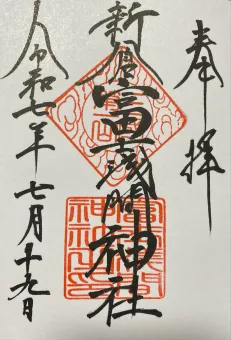 奉拝
新倉富士浅間神社
令和七年七月十九日